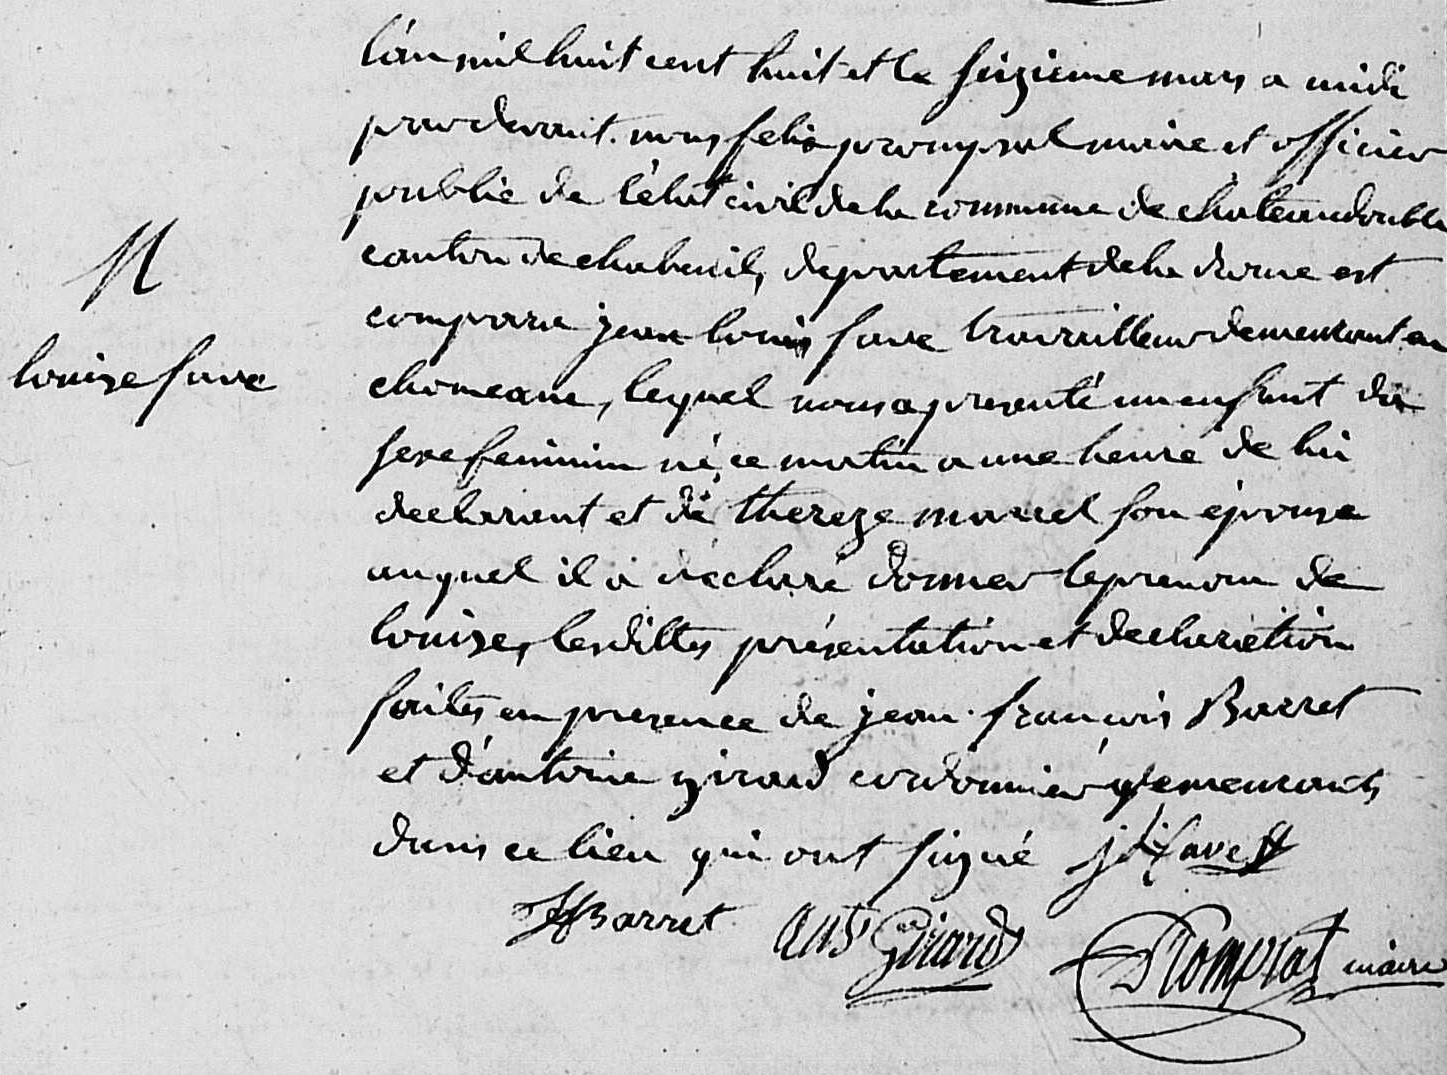 l'an mil huit cent huit et le seizieme mars a midi
pardevant nous felix prompsal maire et officier
public de l'état civil de la commune de chateaudouble
canton de chabeuil, departement de la drome est
comparu jean louis fave travailleur demeurant en
N
louise fave
lequel nous a presenté un enfant du
sexe feminin né ce matin a une heure de lui
declarant et de thereze marcel son épouse
auquel il a declaré donner le prenom de
louize, lesdittes présentation et declaration
faites en presence de jean françois Barret
et d'antoine girard cordonnier demeurants
dans ce lieu qui ont signé j l fave
JFBarret ant Girard Prompsal maire